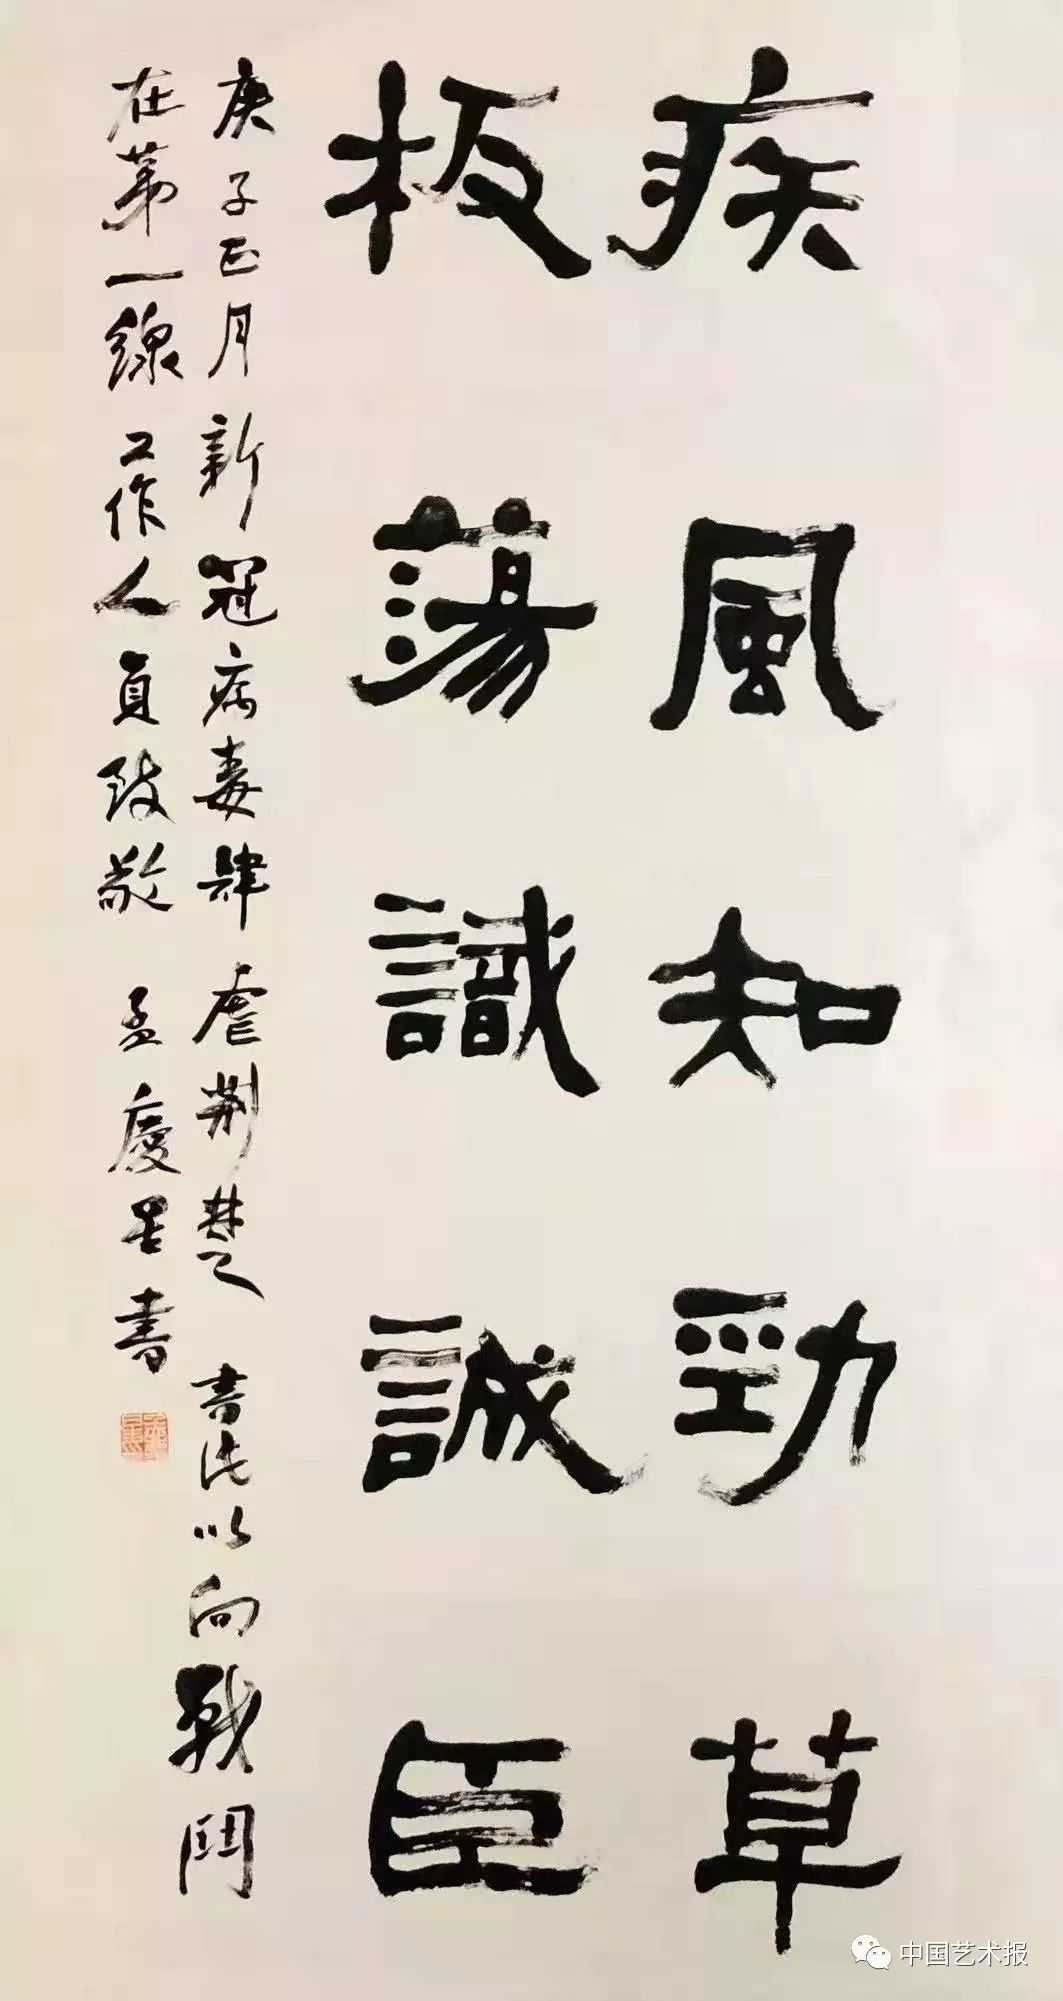 疾風知勁草
板蕩識誠臣
庚子正月新冠病毒肆虐荆楚書此以向戰鬥
在第一線工作人員致敬孟慶星書
中国艺术报